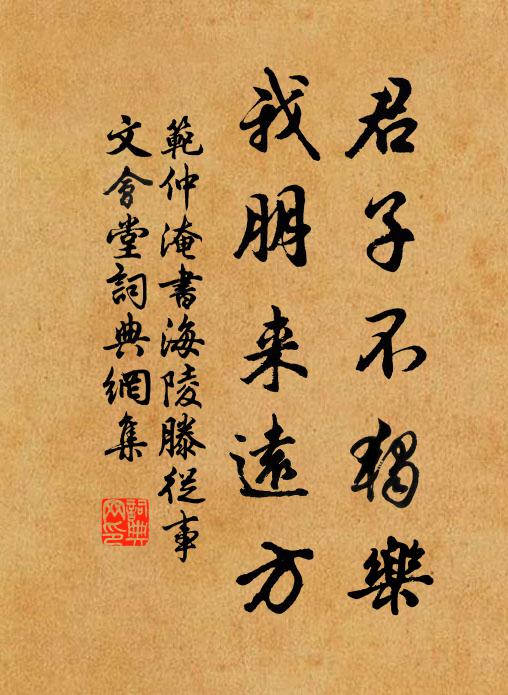 君子不獨樂
我朋来遠方
範仲淹書海陵滕從事
文會堂詞典網集
詞典
网印